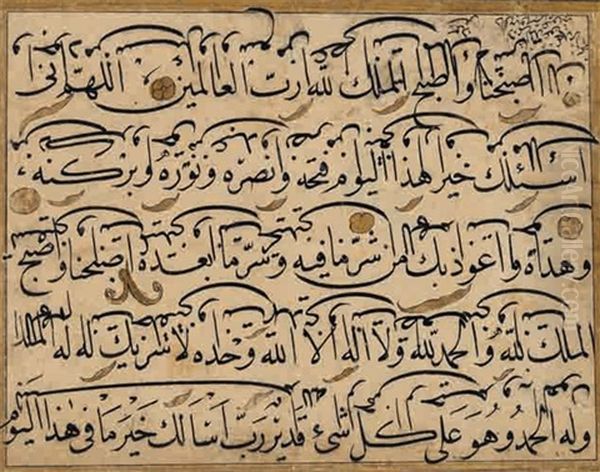 اصبحنا واصبح الملك لله رب العالمين اللهم اني
اسئلك خير هذا اليوم فتحه ونصره ونوره وبركته
وهداه واعوذ بك من شر ما فيه وشر ما بعده اصبحنا واصبح
الملك لله والحمد لله ولا اله الا الله وحده لا شريك له له الملك
وله الحمد وهو على كل شئ قدير رب اسالك خير ما في هذا اليوم